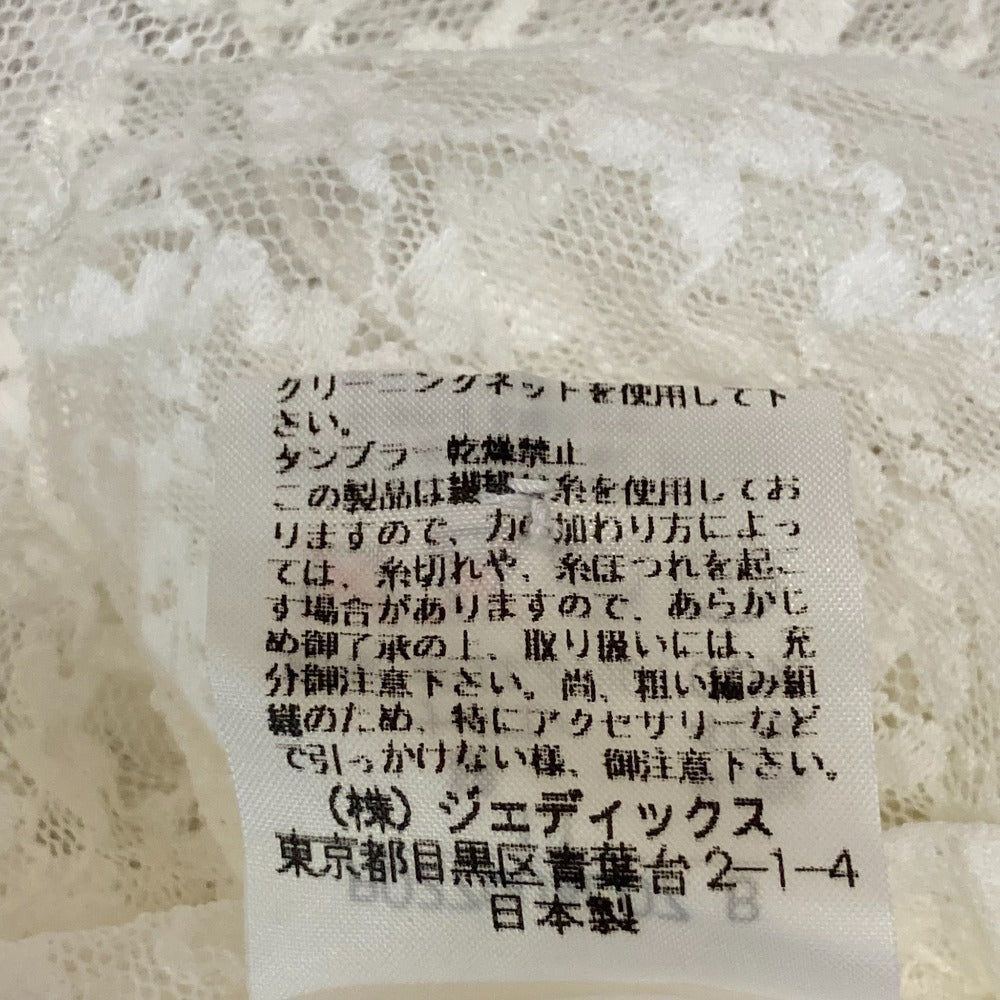 クリーニングネットを使用して下
さい。
タンブラー乾燥禁止
この製品は繊細な糸を使用してお
りますので、力の加わり方によっ
ては、糸切れや、糸ほつれを起こ
す場合がありますので、あらかじ
め御了承の上、取り扱いには、充
分御注意下さい。尚、粗い編み組
織のため、特にアクセサリーなど
で引っかけない様、御注意下さい。
(株)ジェディックス
東京都目黒区青葉台2-1-4
日本製